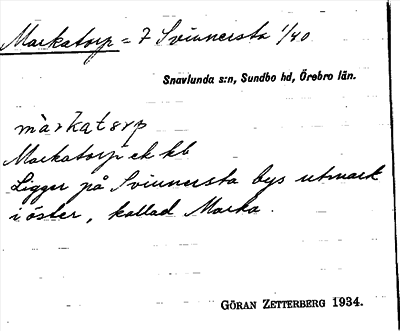 Markatorp = 7 Svinnersta 1/40
Snavlunda s:n, Sundbo hd, Örebro län.
màrkatɔrp
Markatorp ek kb
Ligger på Svinnersta bys utmark
i öster, kallad Marka.
GÖRAN ZETTERBERG 1934.